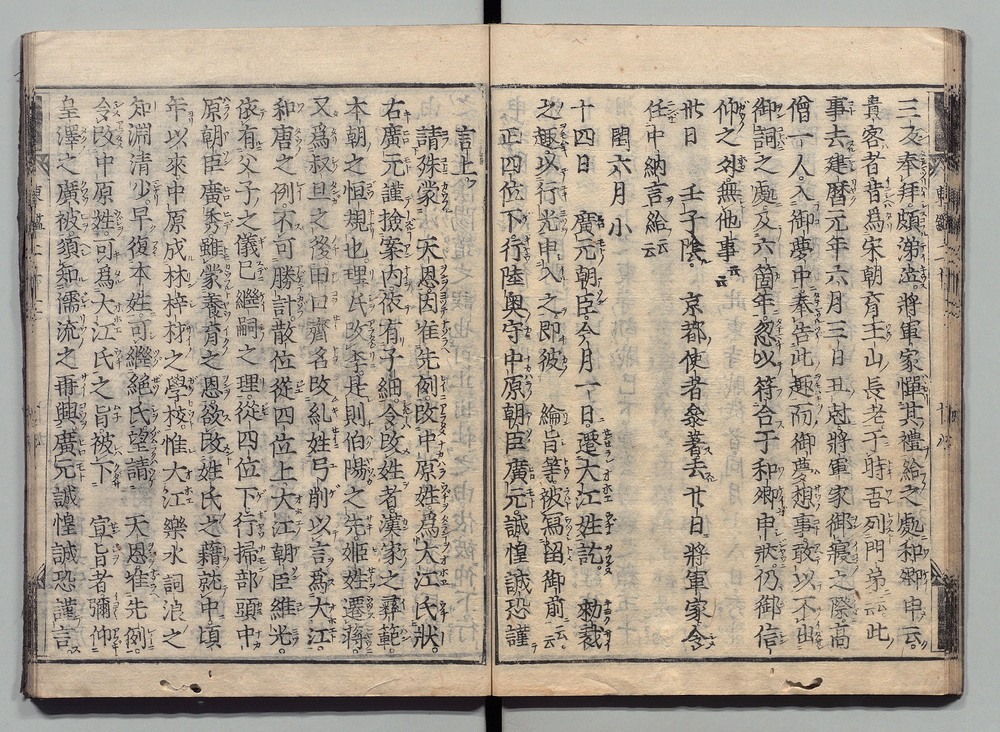 三反奉拜。頗涕泣。將軍家憚其禮給之處和卿申云。
貴客者昔為宋朝育王山長老于時吾列門弟云此
事去建曆元年六月三日丑尅將軍家御寢之際高
僧一人。入御夢中奉告此趣而御夢想事敢以不出
御詞之處及六箇年。忽以符合于和卿申狀。仍御信
仰之外無他事云云
廿日　壬子陰。京都使者參著去廿日將軍家令
任中納言給云云
閏六月小
十四日　廣元朝臣今月一日遷大江姓訖。勅裁
之趣以行光申入之即彼　綸旨等被寫留御前云云
正四位下行陸奥守中原朝臣廣元誠惶誠恐謹
言上
請殊蒙　天恩因准先例改中原姓為大江氏狀。
右廣元謹撿案内依有子細令改姓者漢家之彛範
本朝之恒規也理氏改李是則伯陽之先姬姓遷蔣
又為叔旦之後田口齊名改紀姓弓削以言為大江。
和唐之例。不可勝計散位從四位上大江朝臣維光。
依有父子之儀已繼嗣之理。從四位下行掃部頭中
原朝臣廣秀雖蒙養育之恩欲改姓氏之籍就中頃
年以來中原成林梓材之學校。惟大江樂水詞浪之
知淵清少。早復本姓可繼絕氏望請　天恩准先例。
令改中原姓可為大江氏之旨被下　宣旨者彌仰
皇澤之廣被須知儒流之再興廣元誠惶誠恐謹言